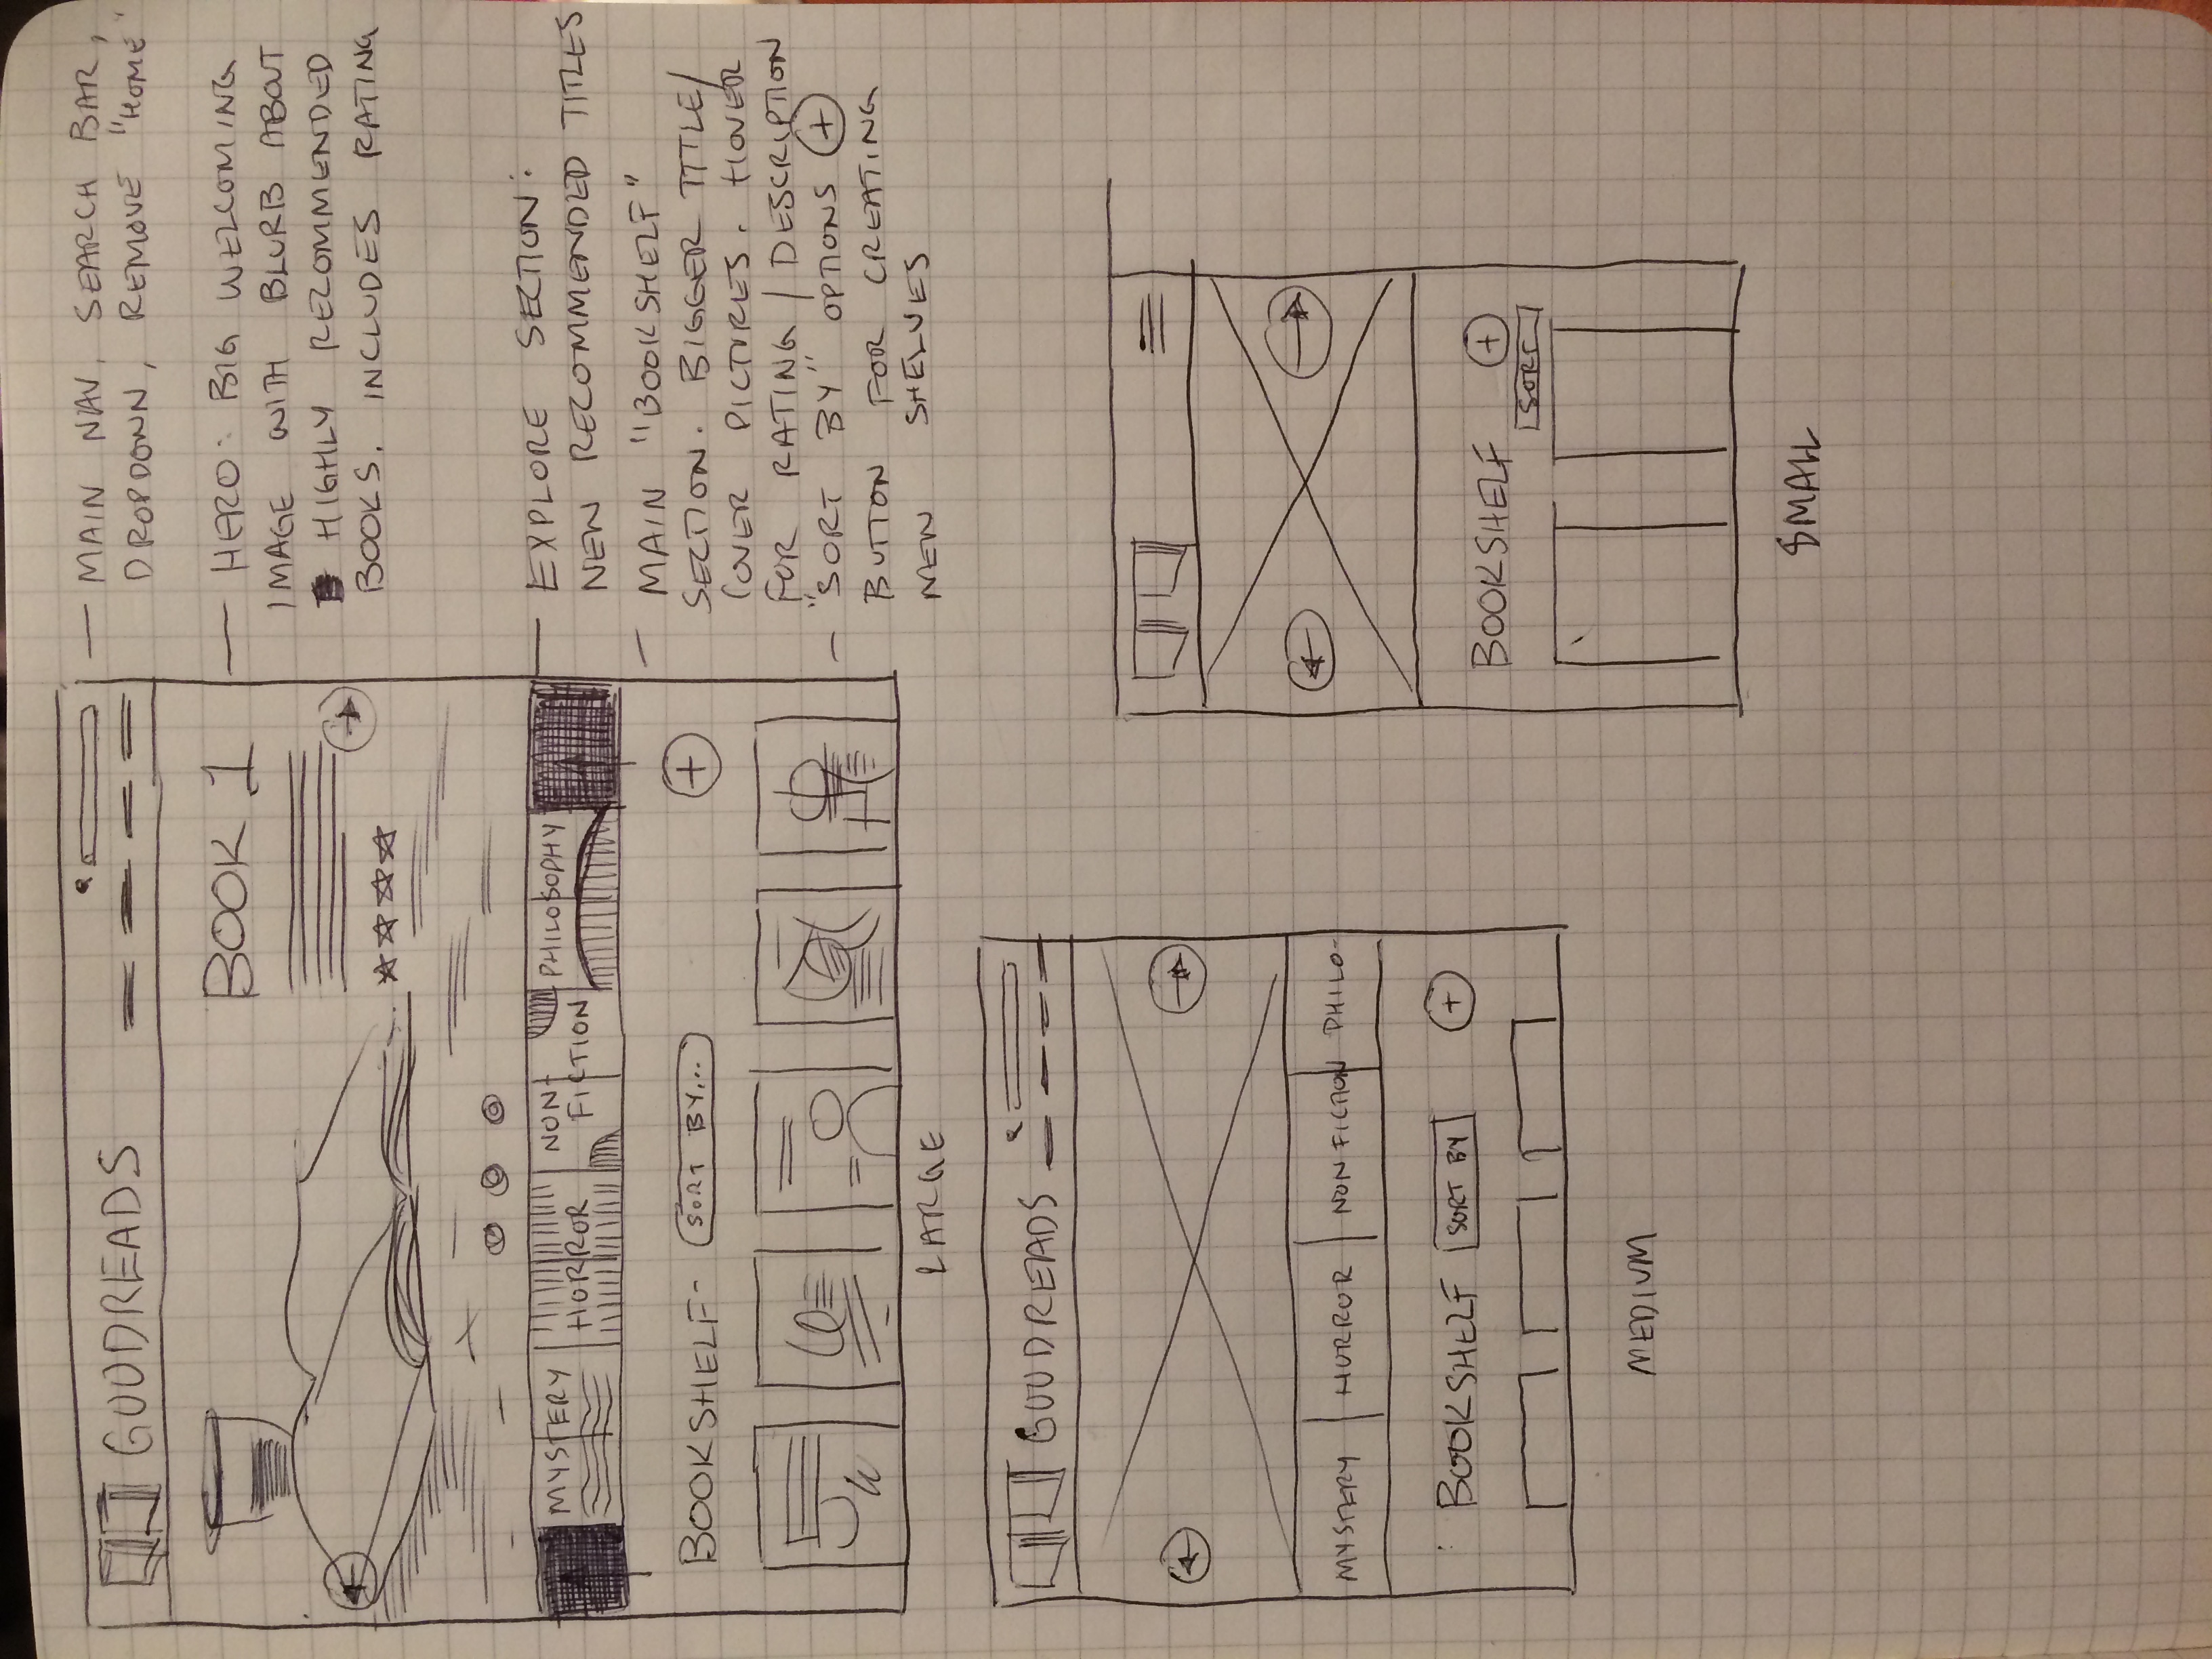 GOODREADS
BOOK 1
MYSTERY
HORROR
NON-
FICTION
PHILOSOPHY
BOOKSHELF
SORT BY...
+
LARGE
— MAIN NAV, SEARCH BAR,
DROPDOWN, REMOVE "HOME"
— HERO: BIG WELCOMING
IMAGE WITH BLURB ABOUT
HIGHLY RECOMMENDED
BOOKS. INCLUDES RATING
— EXPLORE SECTION:
NEW RECOMMENDED TITLES
— MAIN "BOOKSHELF"
SECTION. BIGGER TITLE/
COVER PICTURES. HOVER
FOR RATING / DESCRIPTION
— "SORT BY" OPTIONS +
BUTTON FOR CREATING
NEW SHELVES
GOODREADS
MYSTERY
HORROR
NON FICTION
PHILO-
BOOKSHELF
SORT BY
+
MEDIUM
BOOKSHELF
+
SORT
SMALL